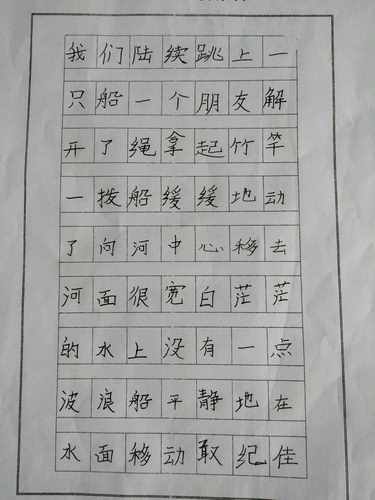 我们陆续跳上一
只船一个朋友解
开了绳拿起竹竿
一拨船缓缓地动
了向河中心移去
河面很宽白茫茫
的水上没有一点
波浪船平静地在
水面移动敢纪佳